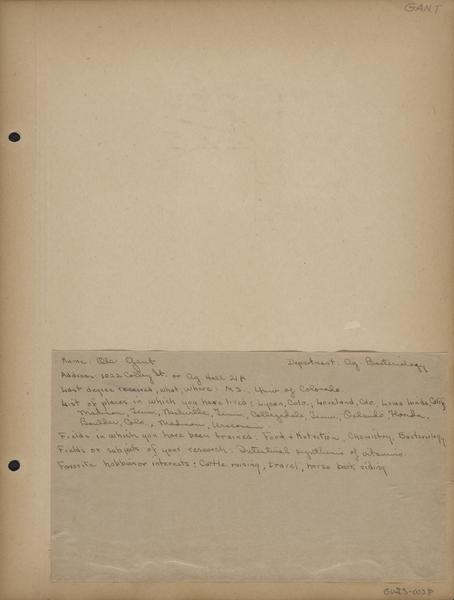 GANT
Name: Ola Gant Department: Ag. Bacteriology
Address: 1022 College St. or Ag. Hall 21A
Last degree received, what, where: M.S., Univ of Colorado.
List of places in which you have lived: Lyson, Colo, Loveland, Colo, Loma Linda, Calif,
Madison, Tenn, Nashville, Tenn, Collegedale, Tenn, Orlando, Florida,
Boulder, Colo, Madison, Wisconsin
Fields in which you have been trained: Food & Nutrition, Chemistry, Bacteriology
Fields or subjects of your research: Intestinal synthesis of vitamins.
Favorite hobbies or interests: Cattle raising, travel, horse back riding